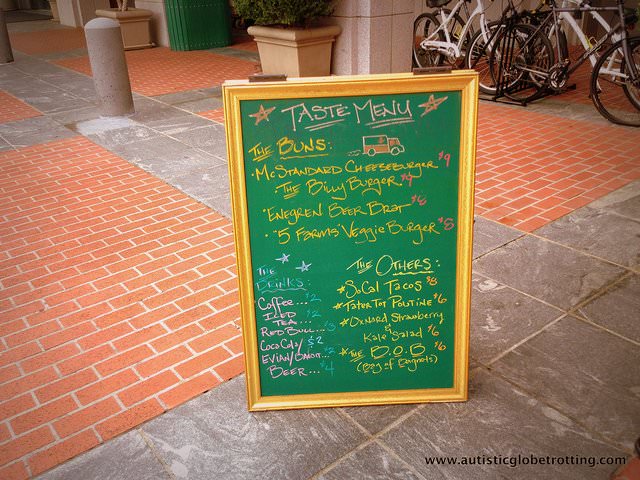 TASTE MENU
THE BUNS:
• McSTANDARD CHEESEBURGER $9
THE BILLY BURGER $9
• ENEGREN BEER BRAT $8
• "5 FARMS" VEGGIE BURGER $8
THE DRINKS
COFFEE... $2
ICED TEA... $2
RED BULL... $3
COCA COLA/ $2
EVIAN/
BEER... $4
THE OTHERS:
SoCAL TACOS $8
TATER TOT POUTINE $6
OXNARD STRAWBERRY
&
KALE SALAD $6
THE B.O.B $6
(BAG OF BEIGNETS)
www.autisticglobetrotting.com